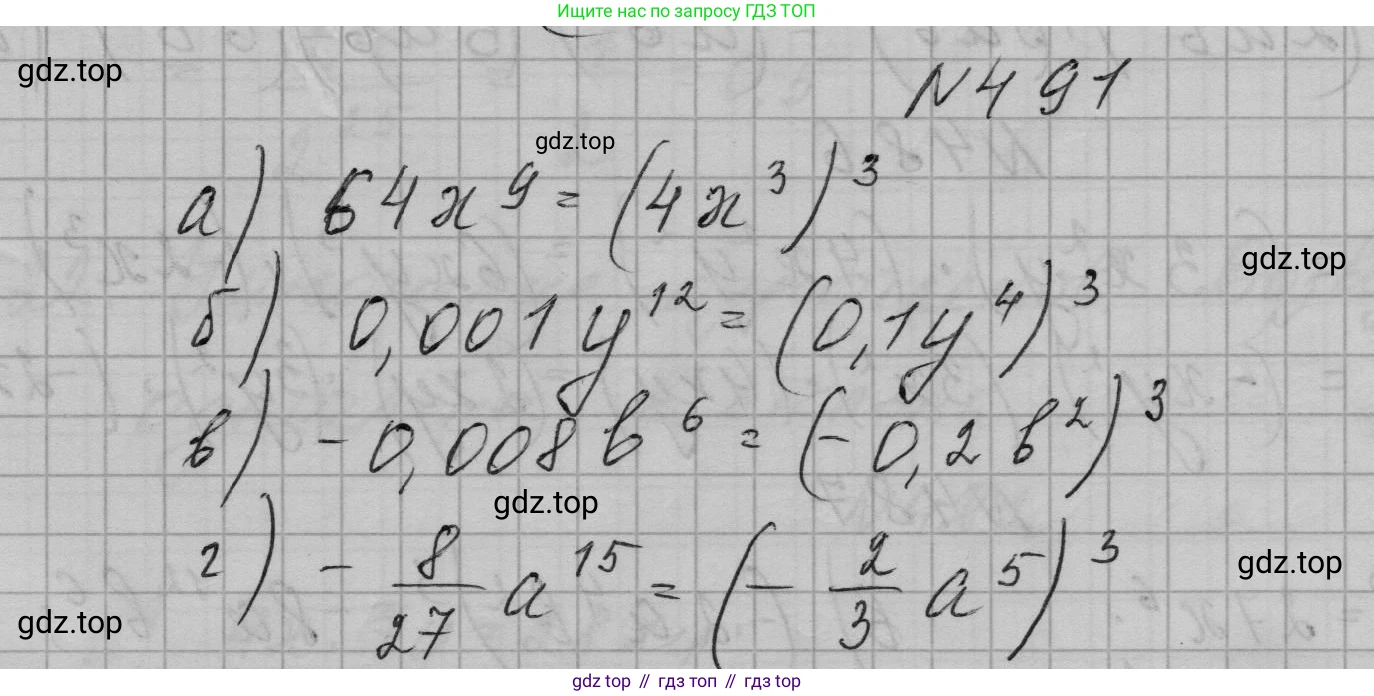 Ищите нас по запросу ГДЗ ТОП
gdz.top
N 491
gdz.top
а) 64x⁹ = (4x³)³
gdz.top
б) 0,001y¹² = (0,1y⁴)³
в) -0,008b⁶ = (-0,2b²)³
gdz.top
г) - 8/27 a¹⁵ = (- 2/3 a⁵)³
gdz.top
gdz.top
gdz top // гдз топ // гдз top